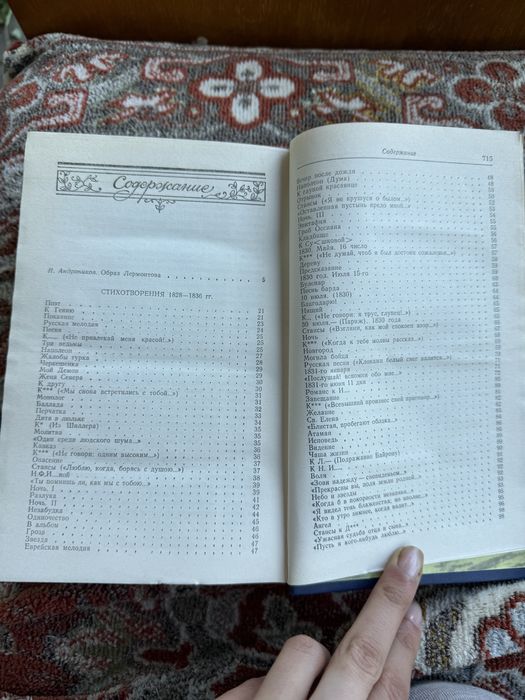 Содержание
И. Андроников. Образ Лермонтова 5
СТИХОТВОРЕНИЯ 1828—1836 гг.
Поэт 21
К Гению 21
Покаяние 21
Русская мелодия 23
Песня 24
К..... («Не привлекай меня красой!») 25
Три ведьмы 25
Наполеон 25
Жалобы турка 27
Черкешенка 28
Мой Демон 29
Жена Севера 29
К другу 30
К*** («Мы снова встретились с тобой...») 30
Монолог 31
Баллада 32
Перчатка 33
Дитя в люльке 34
К* (Из Шиллера) 35
Молитва 35
«Один среди людского шума...» 35
Кавказ 36
К*** («Не говори: одним высоким...») 37
Опасение 37
Стансы («Люблю, когда, борясь с душою...») 37
Н.Ф.И...вой 38
«Ты помнишь ли, как мы с тобою...» 39
Ночь. I 39
Разлука 41
Ночь. II 42
Незабудка 43
Одиночество 44
В альбом 45
Гроза 46
Звезда 46
Еврейская мелодия 47
Содержание 715
Вечер после дождя 48
Наполеон (Дума) 48
К глупой красавице
Отрывок
Стансы («Я не крушуся о былом...»)
«Оставленная пустынь предо мной...»
Ночь. III
Эпитафия
Гроб Оссиана
Кладбище
К Су<шковой>
1830. Майя. 16 число
К*** («Не думай, чтоб я был достоин сожаленья...»)
Дереву
Предсказание
1830 год. Июля 15-го
Булевар
Песнь барда
10 июля. (1830)
Благодарю!
Нищий
К... («Не говори: я трус, глупец!..»)
30 июля.— (Париж). 1830 года
Стансы («Взгляни, как мой спокоен взор...»)
Ночь
К*** («Когда к тебе молвы рассказ...»)
Новгород
Могила бойца
Русская песня («Клоками белый снег валится...»)
1831-го января
«Послушай! вспомни обо мне...»
1831-го июня 11 дня
Романс к И...
Завещание
К*** («Всевышний произнес свой приговор...»)
Желание
Св. Елена
«Блистая, пробегают облака...»
Атаман
Исповедь
Видение
Чаша жизни
К Л.— (Подражание Байрону)
К Н. И....
Воля
«Зови надежду — сновиденьем...»
«Прекрасны вы, поля земли родной...»
Небо и звезды
«Когда б в покорности незнанья...»
«Я видел тень блаженства; но вполне...»
«Кто в утро зимнее, когда валит...»
Ангел 98
Стансы к Д***
«Ужасная судьба отца и сына...»
«Пусть я кого-нибудь люблю...»